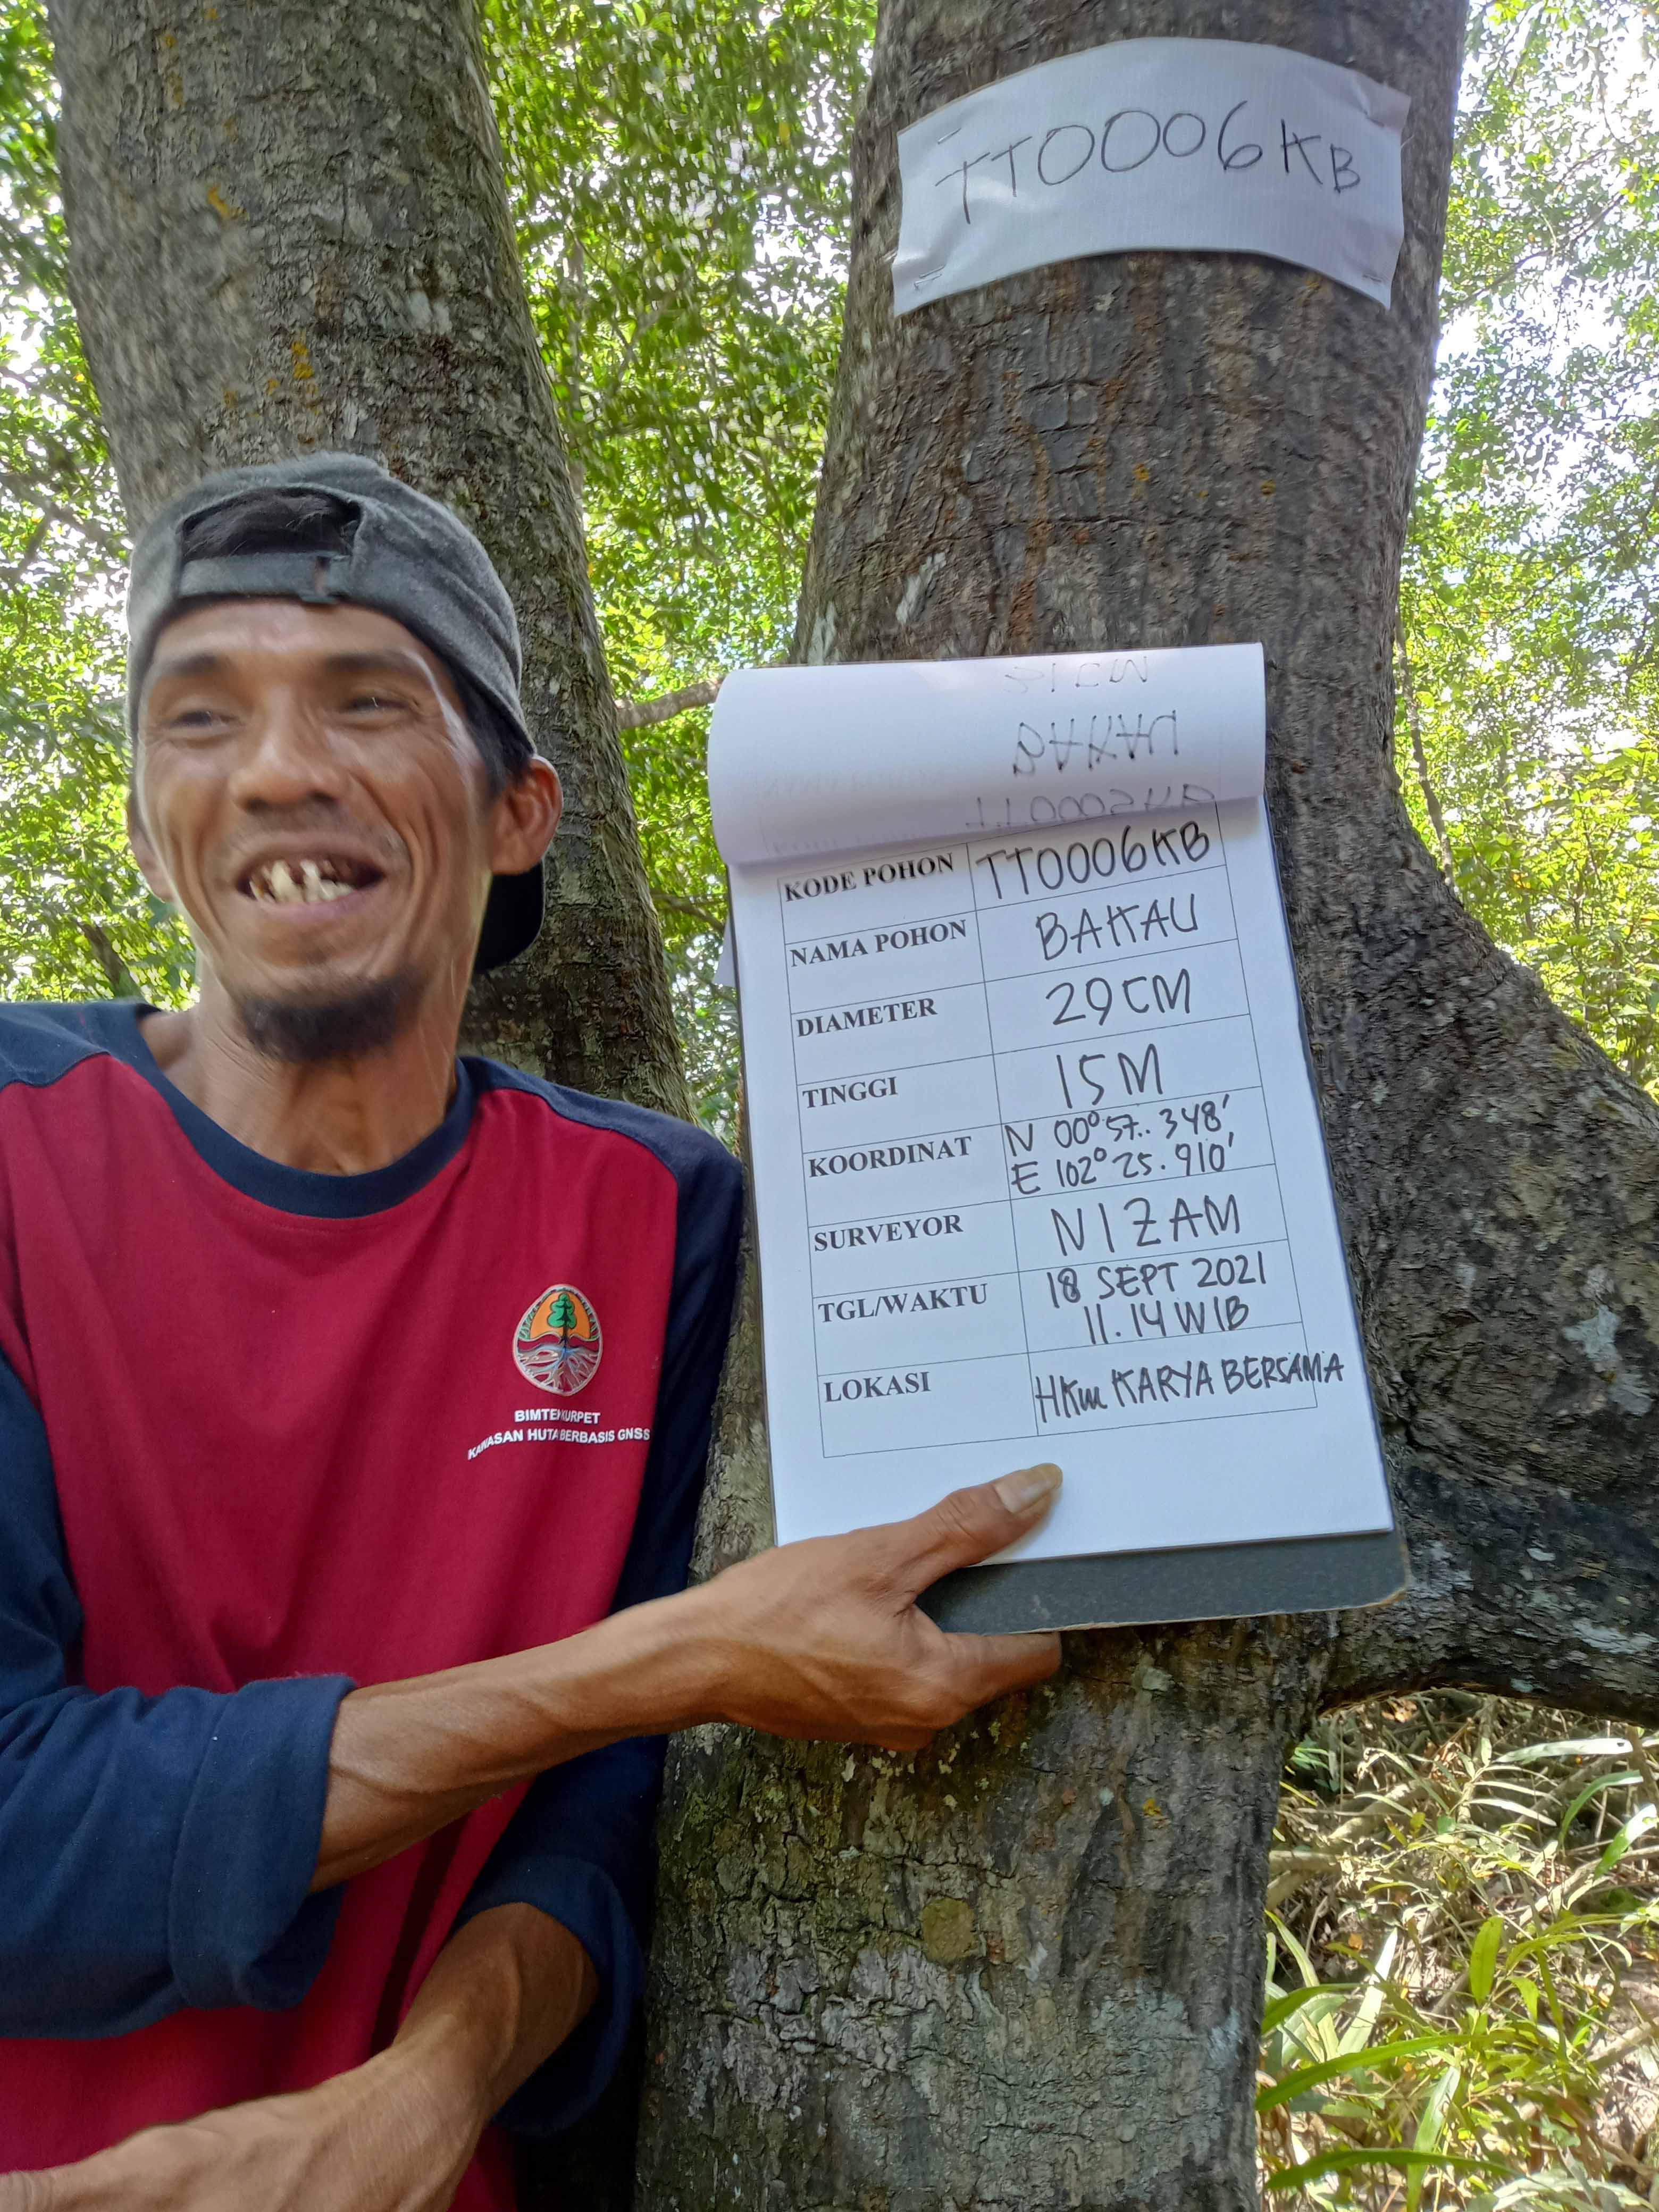 TT0006KB
KODE POHON TT0006KB
NAMA POHON BAKAU
DIAMETER 29CM
TINGGI 15M
KOORDINAT N 00° 57.. 348'
E 102° 25. 910'
SURVEYOR NIZAM
TGL/WAKTU 18 SEPT 2021
11.14 WIB
LOKASI HKm KARYA BERSAMA
BIMTEK KURPET
KAWASAN HUTAN BERBASIS GNSS